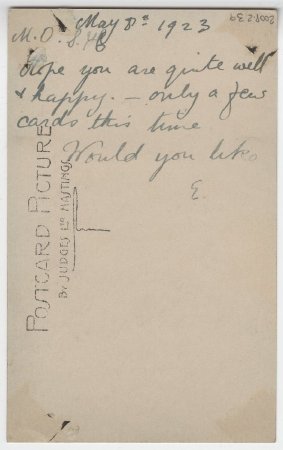 May 8th 1923
M.O.
Hope you are quite well
& happy. – only a few
cards this time
Would you like
E.
POSTCARD PICTURE
BY JUDGES LTD HASTINGS